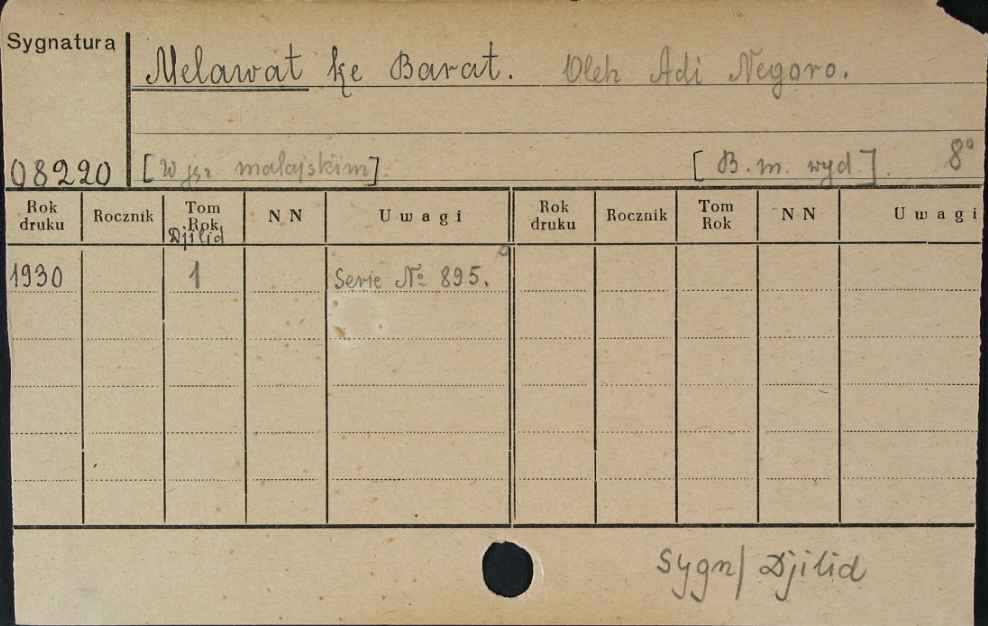 Sygnatura
Melawat ke Barat. Oleh Adi Negoro.
08220 [W jęz malajskim]. [B. m. wyd]. 8°
Rok druku Rocznik Tom Rok Djilid NN Uwagi Rok druku Rocznik Tom Rok NN Uwagi
1930 1 Serie № 895.
Sygn/ Djilid